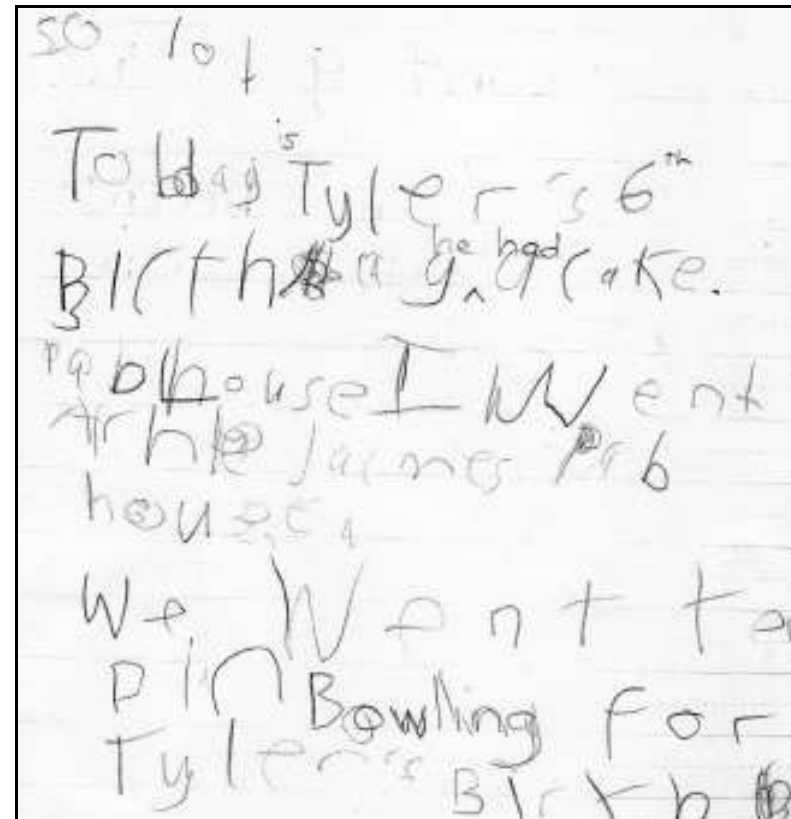 so lot
Today is Tyler's 6th
Birthday he had a cake.
house I went
James Pab
house.
We went te
Pin Bowling for
Tyler's Birth